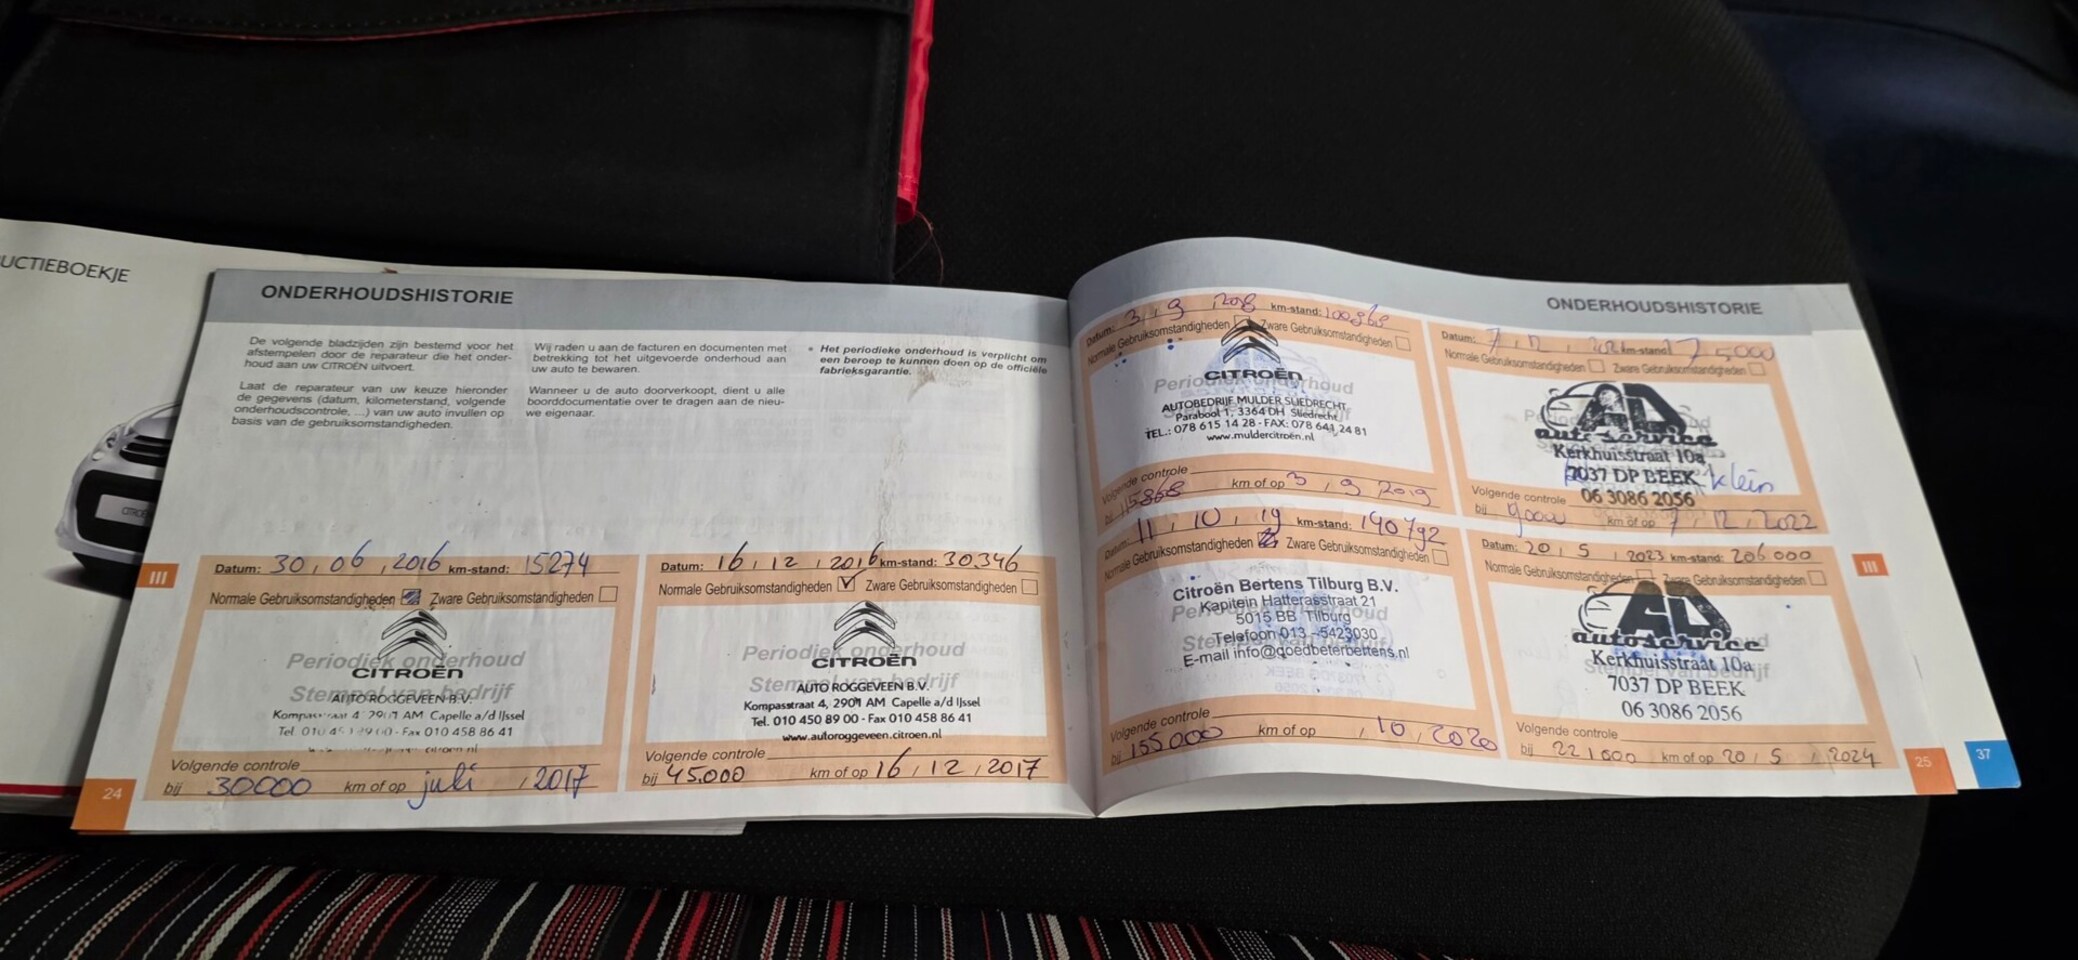 UCTIEBOEKJE
ONDERHOUDSHISTORIE
De volgende bladzijden zijn bestemd voor het
afstempelen door de reparateur die het onder-
houd aan uw CITROËN uitvoert.
Laat de reparateur van uw keuze hieronder
de gegevens (datum, kilometerstand, volgende
onderhoudscontrole, ...) van uw auto invullen op
basis van de gebruiksomstandigheden.
Wij raden u aan de facturen en documenten met
betrekking tot het uitgevoerde onderhoud aan
uw auto te bewaren.
Wanneer u de auto doorverkoopt, dient u alle
boorddocumentatie over te dragen aan de nieu-
we eigenaar.
• Het periodieke onderhoud is verplicht om
een beroep te kunnen doen op de officiële
fabrieksgarantie.
III
Datum: 30, 06, 2016 km-stand: 15274
Normale Gebruiksomstandigheden Zware Gebruiksomstandigheden
Periodiek onderhoud
CITROËN
Stempel van bedrijf
AUTO ROGGEVEEN B.V.
Kompasstraat 4, 2901 AM Capelle a/d IJssel
Fax 010 458 86 41
Volgende controle
bij 30000 km of op juli, 2017
24
Datum: 16, 12, 2016 km-stand: 30.346
Normale Gebruiksomstandigheden Zware Gebruiksomstandigheden
Periodiek onderhoud
CITROËN
Stempel van bedrijf
AUTO ROGGEVEEN B.V.
Kompasstraat 4, 2901 AM Capelle a/d IJssel
Tel. 010 450 89 00 - Fax 010 458 86 41
www.autoroggeveen.citroen.nl
Volgende controle
bij 45.000 km of op 16, 12, 2017
ONDERHOUDSHISTORIE
Datum: 3, 9, 2018 km-stand: 100868
Normale Gebruiksomstandigheden Zware Gebruiksomstandigheden
CITROËN
Periodiek onderhoud
AUTOBEDRIJF MULDER SLIEDRECHT
Parabool 1, 3364 DH Sliedrecht
TEL.: 078 615 14 28 - FAX: 078 641 24 81
www.muldercitroën.nl
Volgende controle
bij 115868 km of op 3, 9 2019
Datum: 11, 10, 19 km-stand: 140792
Normale Gebruiksomstandigheden Zware Gebruiksomstandigheden
Citroën Bertens Tilburg B.V.
Kapitein Hatterasstraat 21
Periodiek onderhoud
5015 BB Tilburg
Telefoon 013 - 5423030
E-mail info@goedbeterbertens.nl
Volgende controle
bij 155000 km of op , 10, 2020
Datum: 7, 12, km-stand: 175000
Normale Gebruiksomstandigheden Zware Gebruiksomstandigheden
AD
autoservice
Kerkhuisstraat 10a
7037 DP BEEK klein
06 3086 2056
Volgende controle
bij km of op 7, 12, 2022
Datum: 20, 5, 2023 km-stand: 206.000
Normale Gebruiksomstandigheden Zware Gebruiksomstandigheden
AD
autoservice
Kerkhuisstraat 10a
7037 DP BEEK
06 3086 2056
Volgende controle
bij 221000 km of op 20, 5, 2024
III
25
37